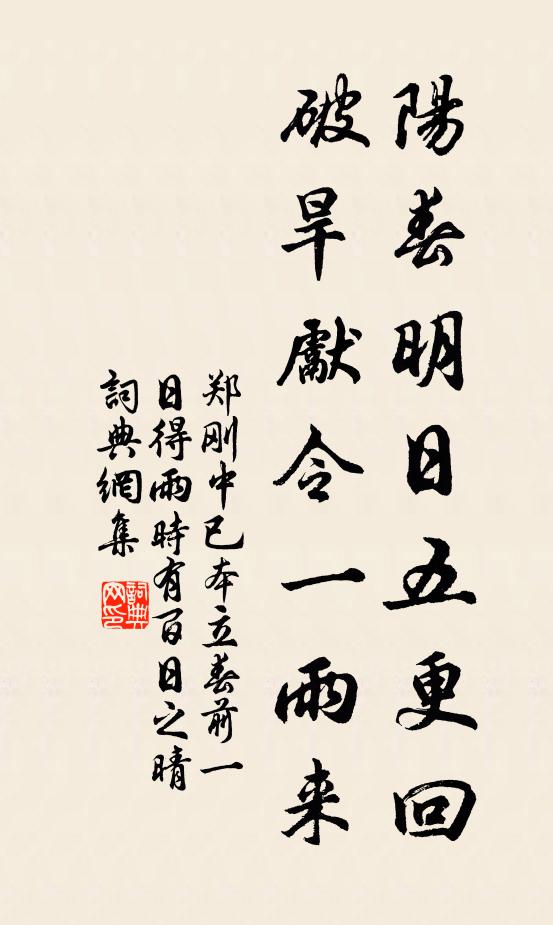 陽春明日五更回
破旱獻令一雨来
郑刚中已夲立春前一
日得雨時有百日之晴
詞典網集
詞典网印